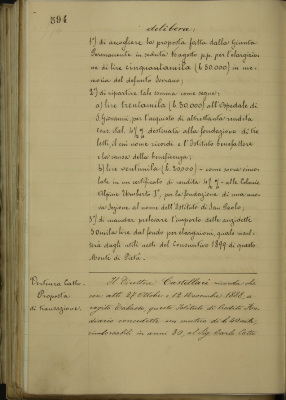 394
delibera:
1º) di accogliere la proposta fatta dalla Giunta
Permanente in seduta 4 agosto p.p. per l'elargizio-
ne di lire cinquantamila (£ 50.000) in me-
moria del defunto Sovrano;
2º) di ripartire tale somma come segue:
a) lire trentamila (£ 30.000) all'Ospedale di
S. Giovanni, per l'acquisto di altrettanta rendita
cons. dal 4½ % destinata alla fondazione di tre
letti, il cui nome ricordi e l'Istituto benefattore
e la causa della beneficenza;
b) lire ventimila (£ 20.000) - come sovra vinco-
late in un certificato di rendita 4½ % - alle Colonie
Alpine Umberto I°, per la fondazione di una nuo-
va Sezione al nome dell'Istituto di San Paolo;
3º) di mandar prelevare l'importo delle suddette
50 mila lire dal fondo per elargizioni, quale risul-
terà dagli utili netti del Consuntivo 1899 di questo
Monte di Pietà.
Vertenza Cotta.
Proposta
di transazione.
Il Direttore Castellari ricorda che
con atti 27 Ottobre e 12 Novembre 1888, a
rogito questo Istituto di Credito Fon-
diario concedette un mutuo di £
rimborsabile in anni 30, al Sig. Carlo Cotta